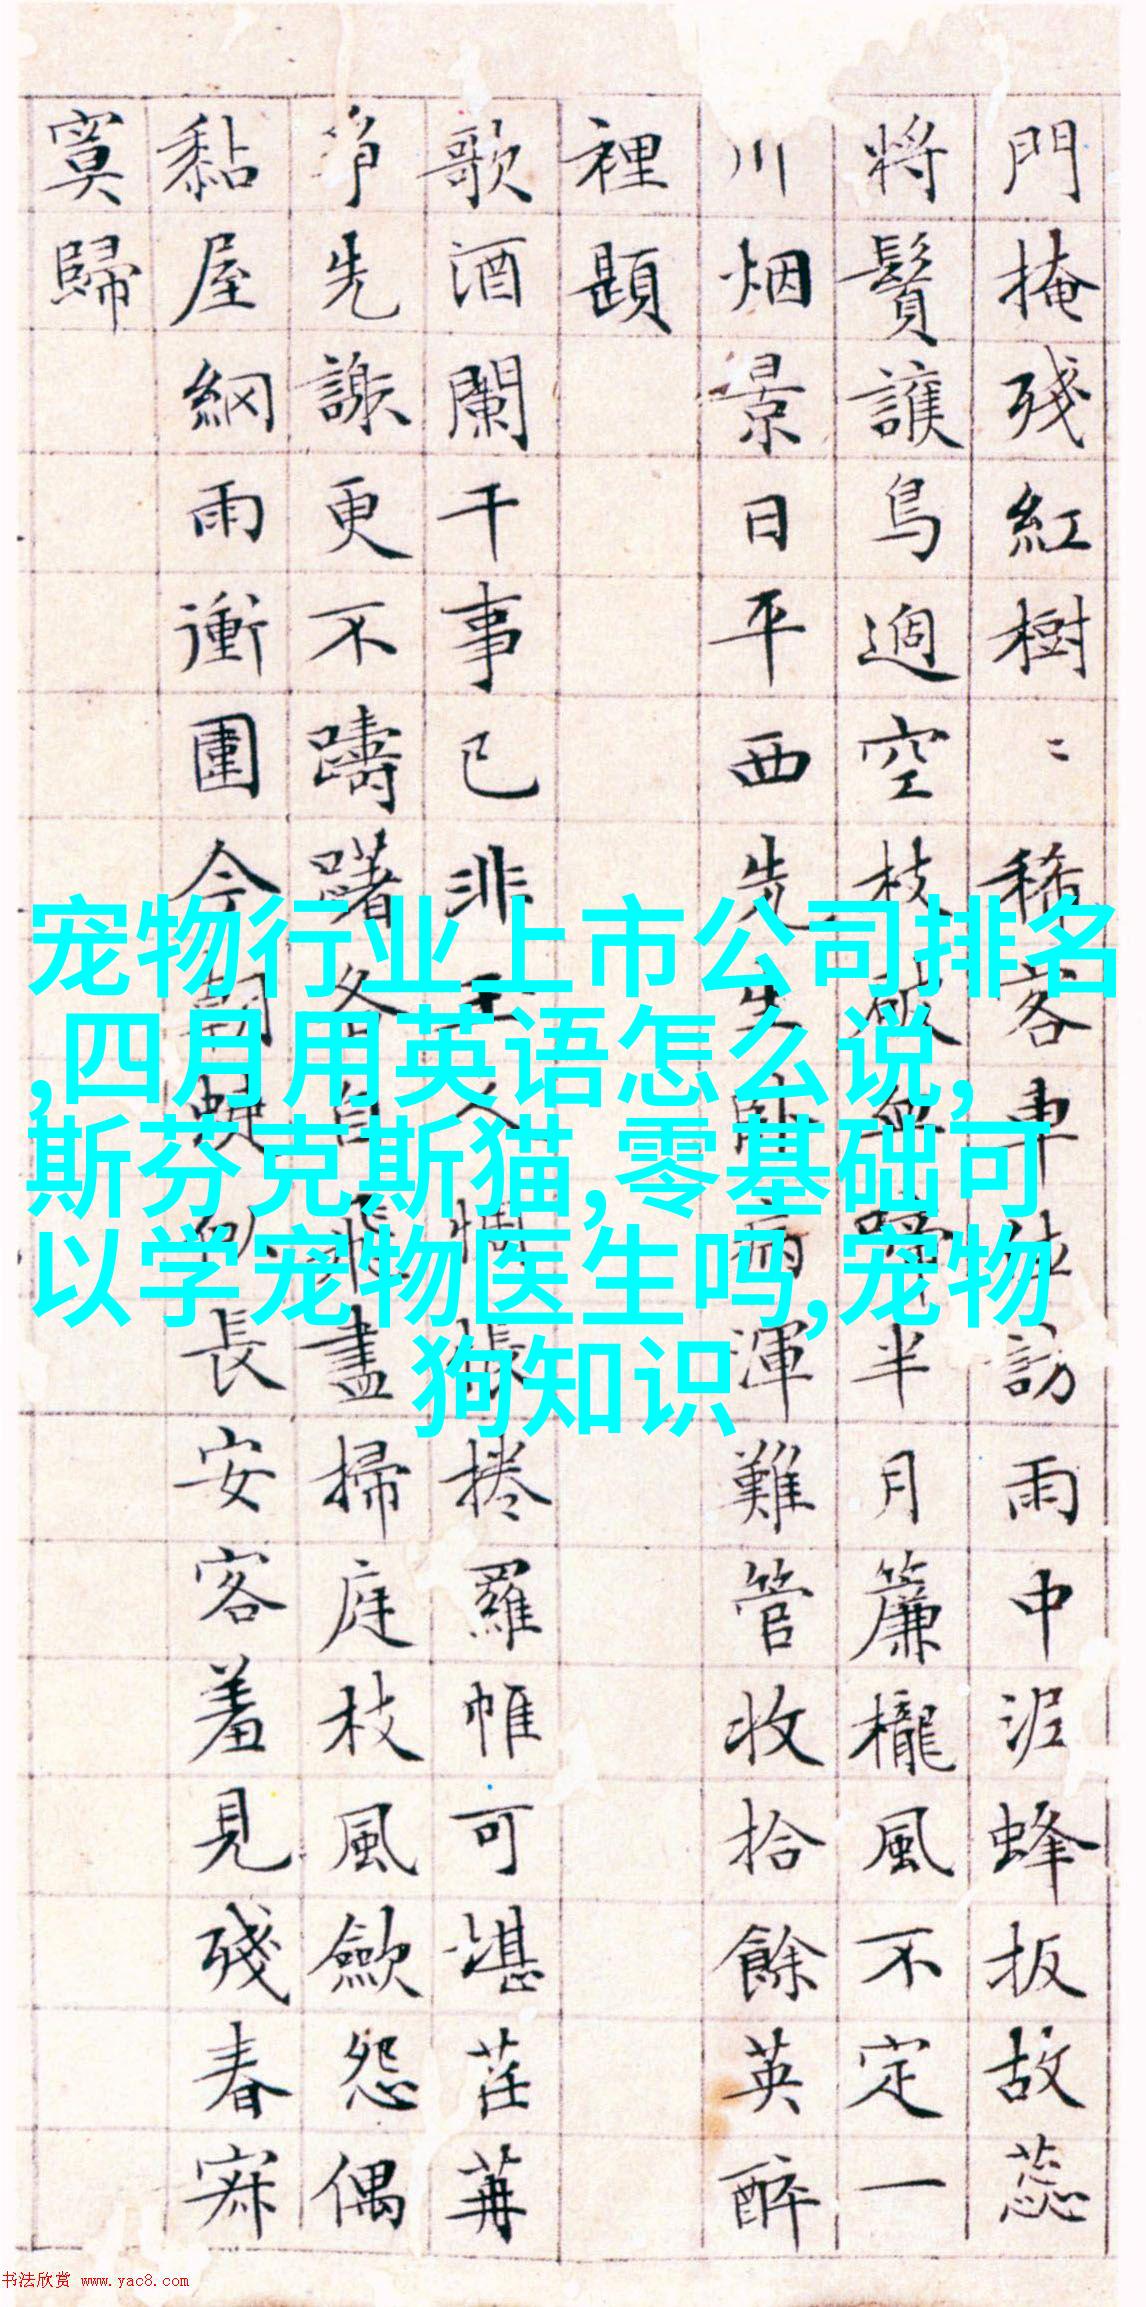 門掩殘紅樹〻稀客車
訪雨中泥蜂扳故蕊
將鬢護鳥過空枝
半月簾櫳風不定一
川烟景日平西先生卧病渾難管收拾餘英醉
裡題
歌酒闌干事已非主人惆悵捲羅帷可堪荏苒
爭先謝更不躊躇各自飛盡掃庭枝風歛怨偶
黏屋網雨衝圍今朝蜨似長安客羞見殘春寂
寞歸
宠物行业上市公司排名
,四月用英语怎么说,
斯芬克斯猫,零基础可
以学宠物医生吗,宠物
狗知识
书法欣赏 www.yac8.com